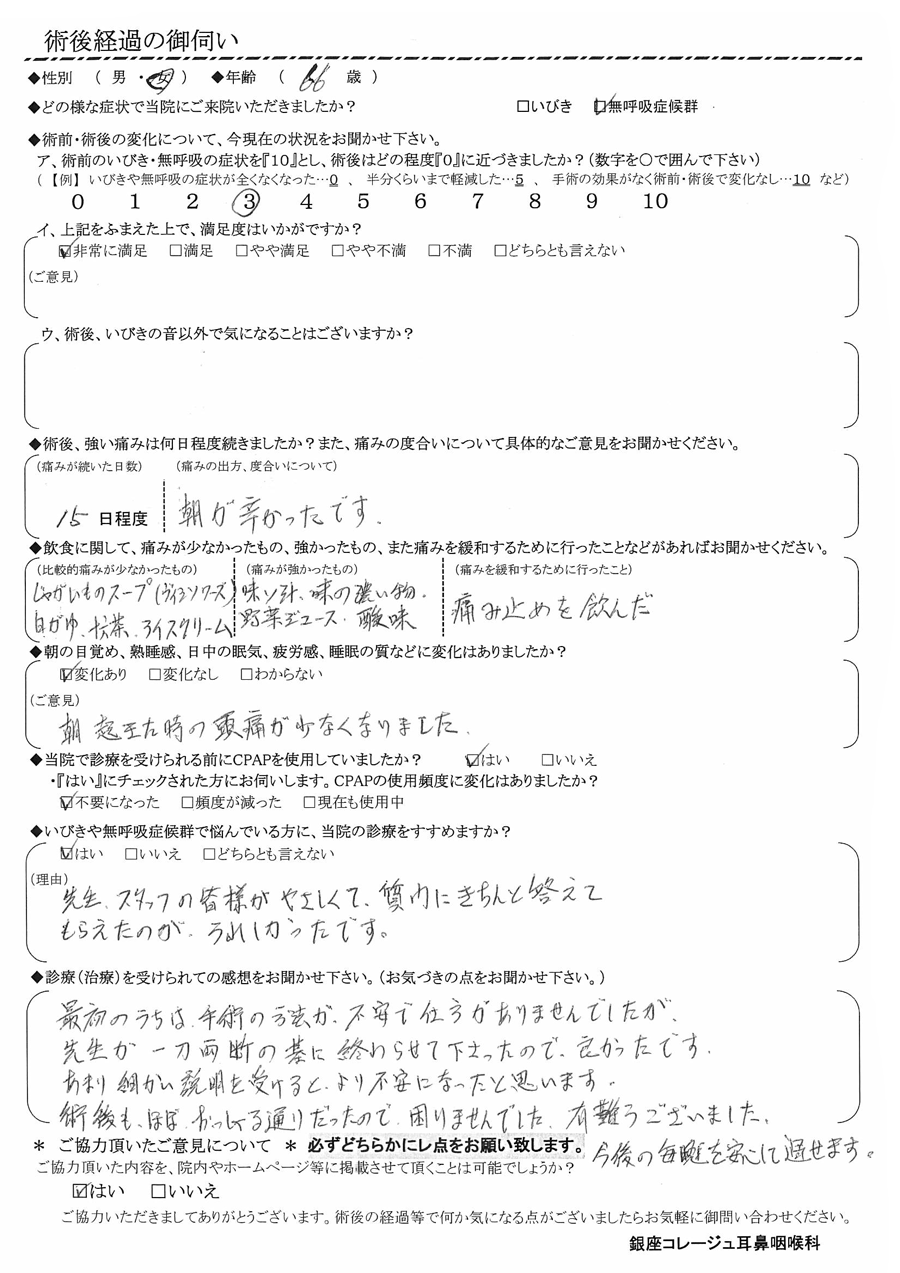 術後経過の御伺い
◆性別 ( 男 ・ 女 ) ◆年齢 ( 66 歳 )
◆どの様な症状で当院にご来院いただきましたか? □いびき ☑無呼吸症候群
◆術前・術後の変化について、今現在の状況をお聞かせ下さい。
ア、術前のいびき・無呼吸の症状を『10』とし、術後はどの程度『0』に近づきましたか?(数字を○で囲んで下さい)
(【例】 いびきや無呼吸の症状が全くなくなった…0 、 半分くらいまで軽減した…5 、 手術の効果がなく術前・術後で変化なし…10 など)
0 1 2 3 4 5 6 7 8 9 10
イ、上記をふまえた上で、満足度はいかがですか?
☑非常に満足 □満足 □やや満足 □やや不満 □不満 □どちらとも言えない
(ご意見)
ウ、術後、いびきの音以外で気になることはございますか?
◆術後、強い痛みは何日程度続きましたか?また、痛みの度合いについて具体的なご意見をお聞かせください。
(痛みが続いた日数) (痛みの出方、度合いについて)
15 日程度 朝が辛かったです.
◆飲食に関して、痛みが少なかったもの、強かったもの、また痛みを緩和するために行ったことなどがあればお聞かせください。
(比較的痛みが少なかったもの) (痛みが強かったもの) (痛みを緩和するために行ったこと)
じゃがいものスープ(ヴィシソワーズ) 味ソ汁、味の濃い物. 痛み止めを飲んだ
白がゆ、お茶、アイスクリーム 野菜ジュース. 酸味
◆朝の目覚め、熟睡感、日中の眠気、疲労感、睡眠の質などに変化はありましたか?
☑変化あり □変化なし □わからない
(ご意見)
朝起きた時の頭痛が少なくなりました.
◆当院で診療を受けられる前にCPAPを使用していましたか? ☑はい □いいえ
・『はい』にチェックされた方にお伺いします。CPAPの使用頻度に変化はありましたか?
☑不要になった □頻度が減った □現在も使用中
◆いびきや無呼吸症候群で悩んでいる方に、当院の診療をすすめますか?
☑はい □いいえ □どちらとも言えない
(理由)
先生、スタッフの皆様がやさしくて、質問にきちんと答えて
もらえたのが、うれしかったです。
◆診療(治療)を受けられての感想をお聞かせ下さい。(お気づきの点をお聞かせ下さい。)
最初のうちは、手術の方法が、不安で仕方がありませんでしたが、
先生が一刀両断の基に終わらせて下さったので、良かったです.
あまり細かい説明を受けると、より不安になったと思います.
術後も、ほぼ、おっしゃる通りだったので、困りませんでした。有難うございました。
＊ ご協力頂いたご意見について ＊ 必ずどちらかにレ点をお願い致します。 今後の毎晩を安心して過せます。
ご協力頂いた内容を、院内やホームページ等に掲載させて頂くことは可能でしょうか?
☑はい □いいえ
ご協力いただきましてありがとうございます。術後の経過等で何か気になる点がございましたらお気軽に御問い合わせください。
銀座コレージュ耳鼻咽喉科